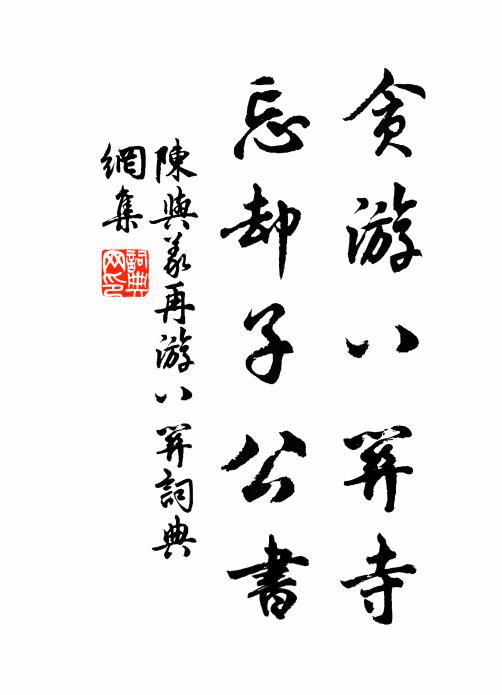 貪游八關寺
忘却子公書
陳與義再游八關詞典
網集
詞典
网印